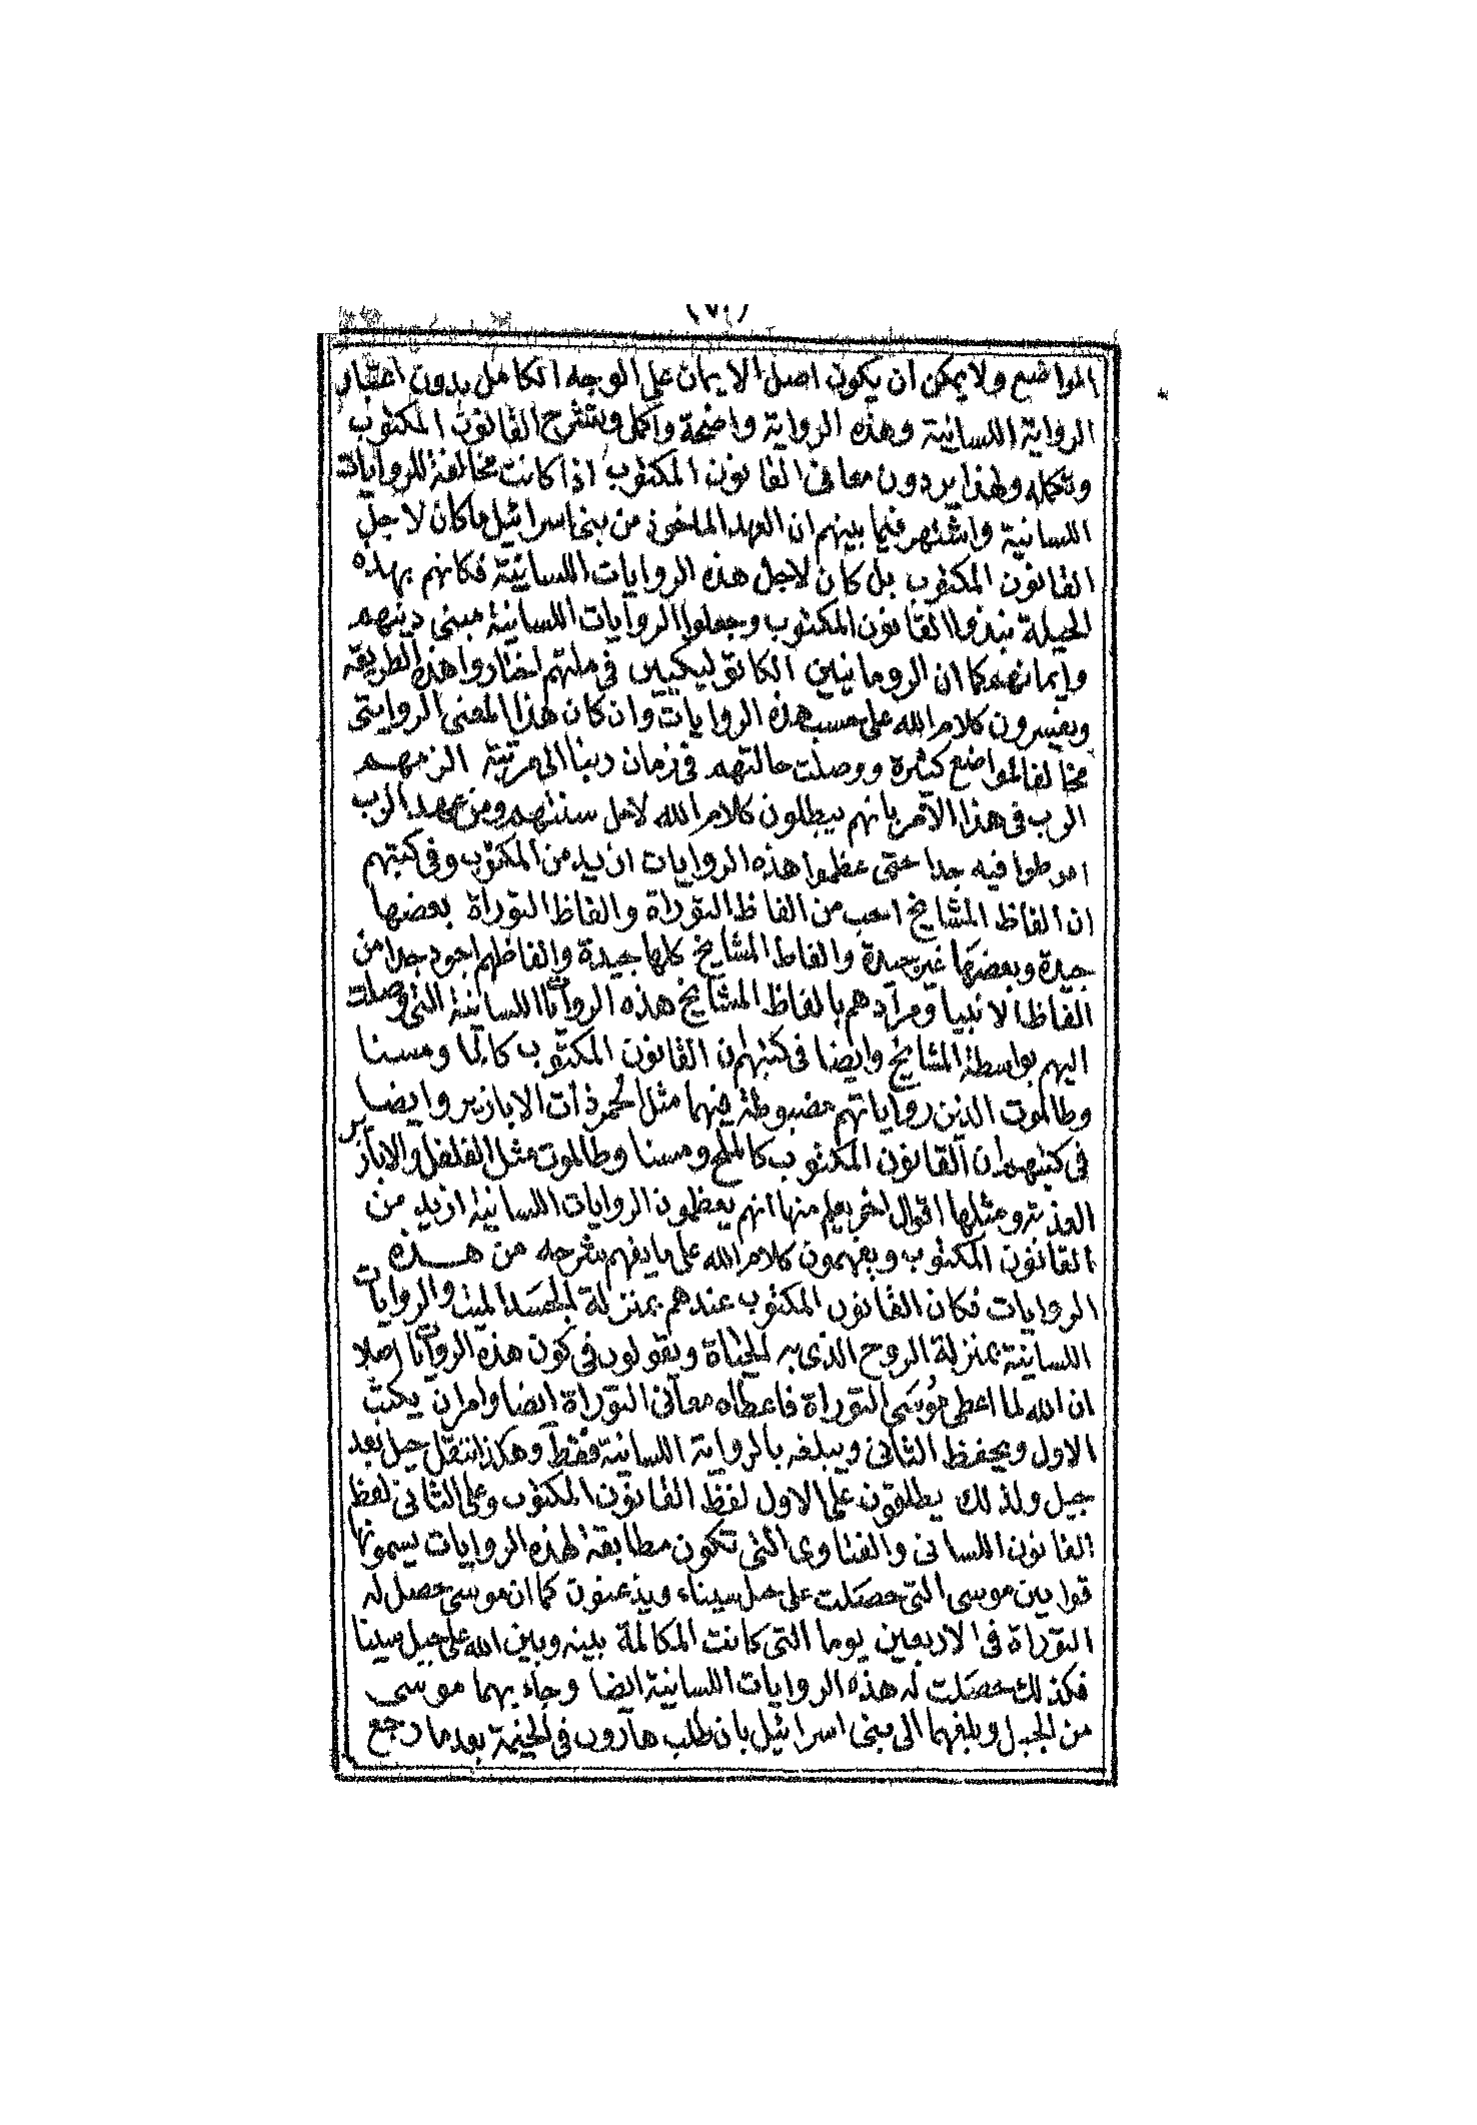 (٧٠)
المواضيع ولا يمكن ان يكون اصل الايمان على الوجه الكامل بدون اعتبار
الرواية اللسانية وهذه الرواية واضحة واكمل وتشرح القانون المكتوب
وتكمله ولهذا يردون معانى القانون المكتوب اذا كانت مخالفة للروايات
اللسانية واشتهر فيما بينهم ان العهد الماخوذ من بنى اسرائيل ما كان لاجل
القانون المكتوب بل كان لاجل هذه الروايات اللسانية فكانهم بهذه
الحيلة نبذوا القانون المكتوب وجعلوا الروايات اللسانية مبنى دينهم
وايمانهم كما ان الرومانيين الكاتوليكيين فى ملتهم اختاروا هذه الطريقة
ويفسرون كلام الله على حسب هذه الروايات وان كان هذا المعنى الروايتى
مخالفا لمواضع كثيرة ووصلت حالتهم فى زمان ربنا الى مرتبة الزمهم
الرب فى هذا الامر بانهم يبطلون كلام الله لاجل سنتهم ومن عهد الرب
افرطوا فيه جدا حتى عظموا هذه الروايات ازيد من المكتوب وفى كتبهم
ان الفاظ المشايخ احب من الفاظ التوراة والفاظ التوراة بعضها
جيدة وبعضها غير جيدة والفاظ المشايخ كلها جيدة والفاظهم اجود جدا من
الفاظ الانبيا ومرادهم بالفاظ المشايخ هذه الروايات اللسانية التى وصلت
اليهم بواسطة المشايخ وايضا فى كتبهم ان القانون المكتوب كالما ومسنا
وطالموت الذين رواياتهم مضبوطة فيهما مثل الخمر ذات الابازير وايضا
فى كتبهم ان القانون المكتوب كالملح ومسنا وطالموت مثل الفلفل والابازير
العذبة ومثلها اقوال اخر يعلم منها انهم يعظمون الروايات اللسانية ازيد من
القانون المكتوب ويفهمون كلام الله على ما يفهم شرحه من هذه
الروايات فكان القانون المكتوب عندهم بمنزلة الجسد الميت والروايات
اللسانية بمنزلة الروح الذى به الحياة ويقولون فى كون هذه الروايات اصلا
ان الله لما اعطى موسى التوراة فاعطاه معانى التوراة ايضا وامر ان يكتب
الاول ويحفظ الثانى ويبلغه بالرواية اللسانية فقط وهكذا تنقل جيل بعد
جيل ولذلك يطلقون على الاول لفظ القانون المكتوب وعلى الثانى لفظ
القانون اللسانى والفتاوى التى تكون مطابقة لهذه الروايات يسمونها
قوانين موسى التى حصلت على جبل سيناء ويذعنون كما ان موسى حصل له
التوراة فى الاربعين يوما التى كانت المكالمة بينه وبين الله على جبل سينا
فكذلك حصلت له هذه الروايات اللسانية ايضا وجاء بهما موسى
من الجبل وبلغهما الى بنى اسرائيل بان طلب هارون فى الخيمة بعد ما رجع